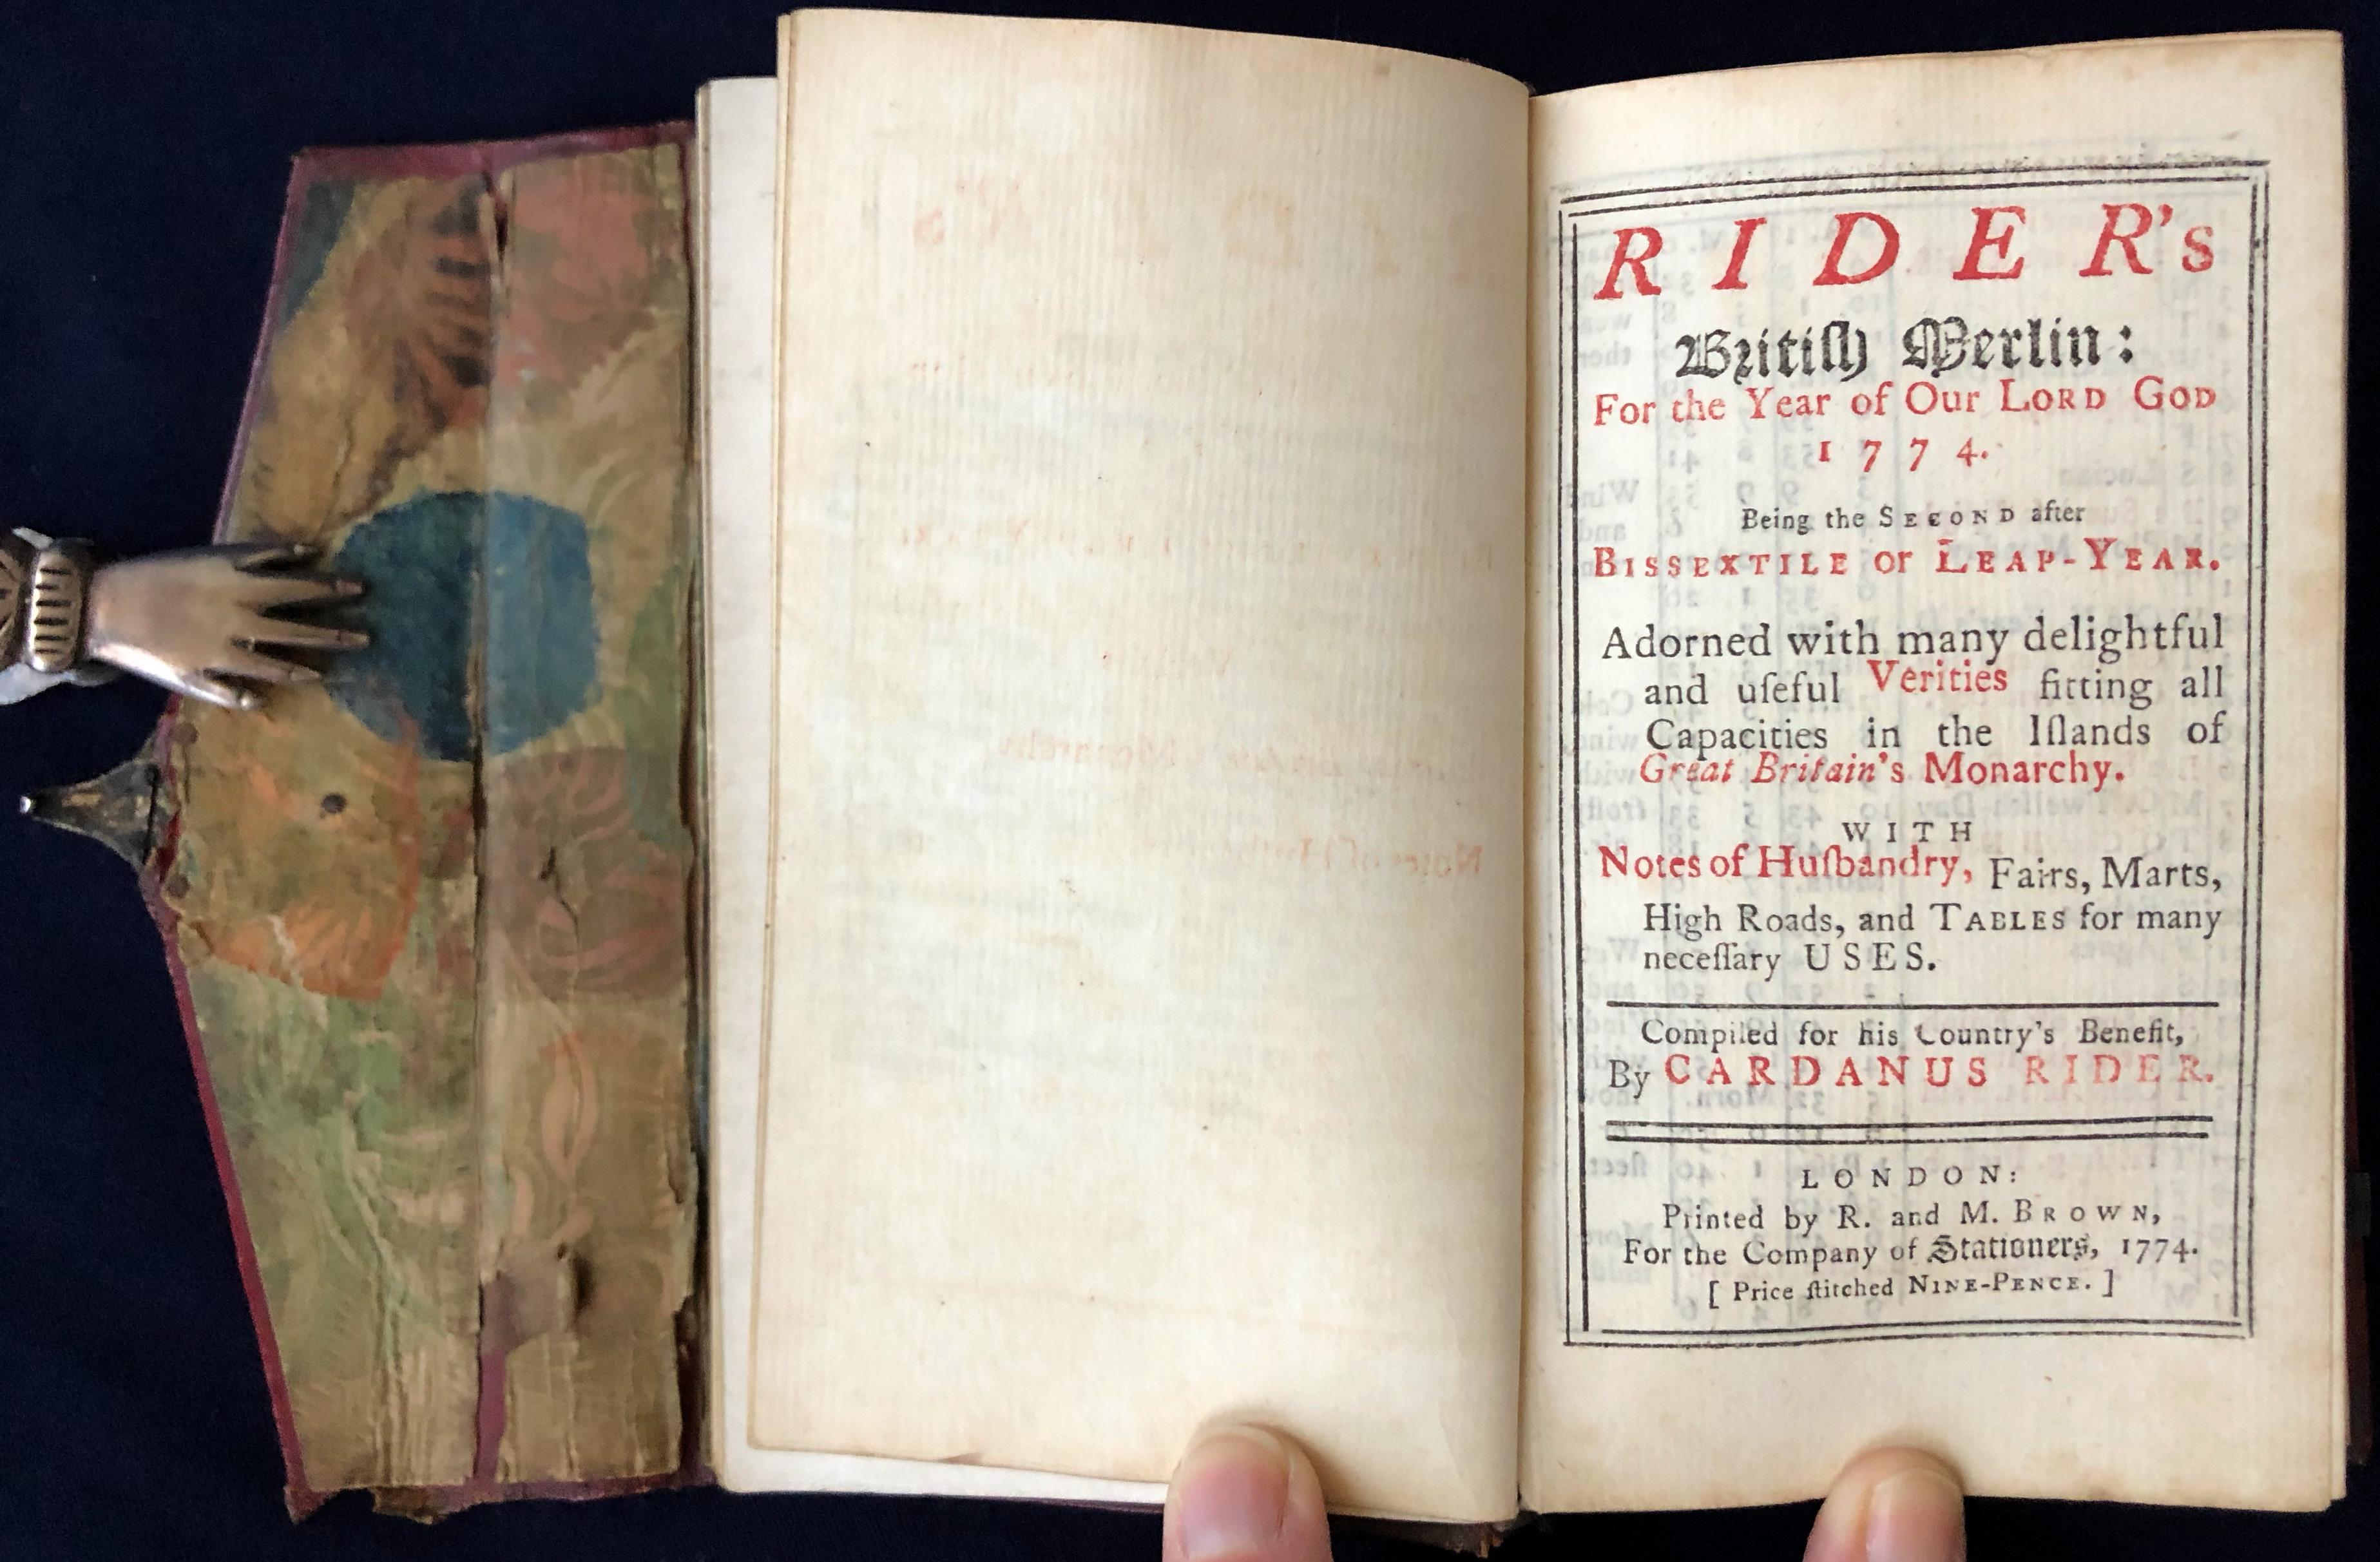 RIDER's
Britiſh Merlin:
For the Year of Our LORD GOD
1774.
Being the SECOND after
BISSEXTILE or LEAP-YEAR.
Adorned with many delightful
and uſeful Verities fitting all
Capacities in the Iſlands of
Great Britain's Monarchy.
WITH
Notes of Huſbandry, Fairs, Marts,
High Roads, and TABLES for many
neceſſary USES.
Compiled for his Country's Benefit,
By CARDANUS RIDER.
LONDON:
Printed by R. and M. BROWN,
For the Company of Stationers, 1774.
[ Price ſtitched NINE-PENCE. ]